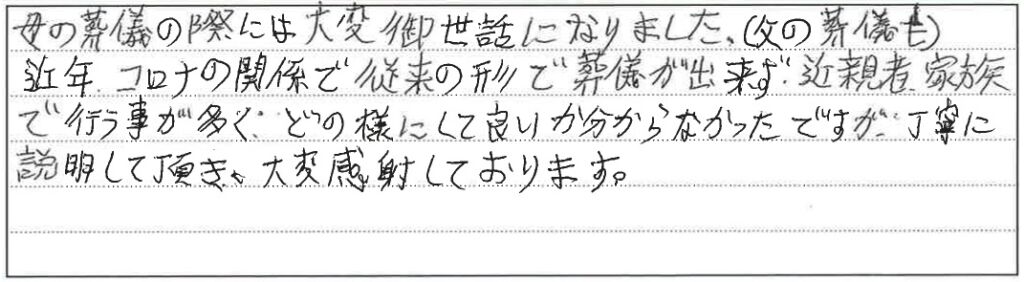 母の葬儀の際には大変御世話になりました、(父の葬儀も)
近年、コロナの関係で従来の形で葬儀が出来ず、近親者、家族
で行う事が多く、どの様にして良いか分からなかったですが、丁寧に
説明して頂き、大変感射しております。